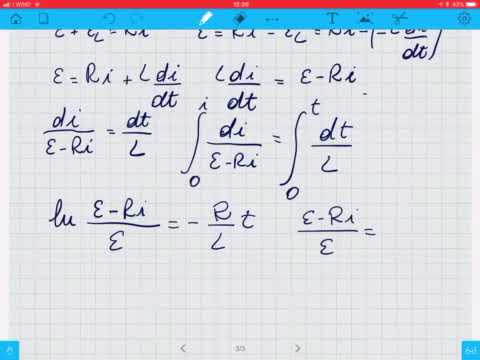 I WIND 12:20 40%
ε + ε_L = Ri ε = Ri − ε_L = Ri − (−L di/dt)
ε = Ri + L di/dt L di/dt = ε − Ri
di/(ε−Ri) = dt/L ∫₀ⁱ di/(ε−Ri) = ∫₀ᵗ dt/L
ln (ε−Ri)/ε = − R/L t (ε−Ri)/ε =
3/3